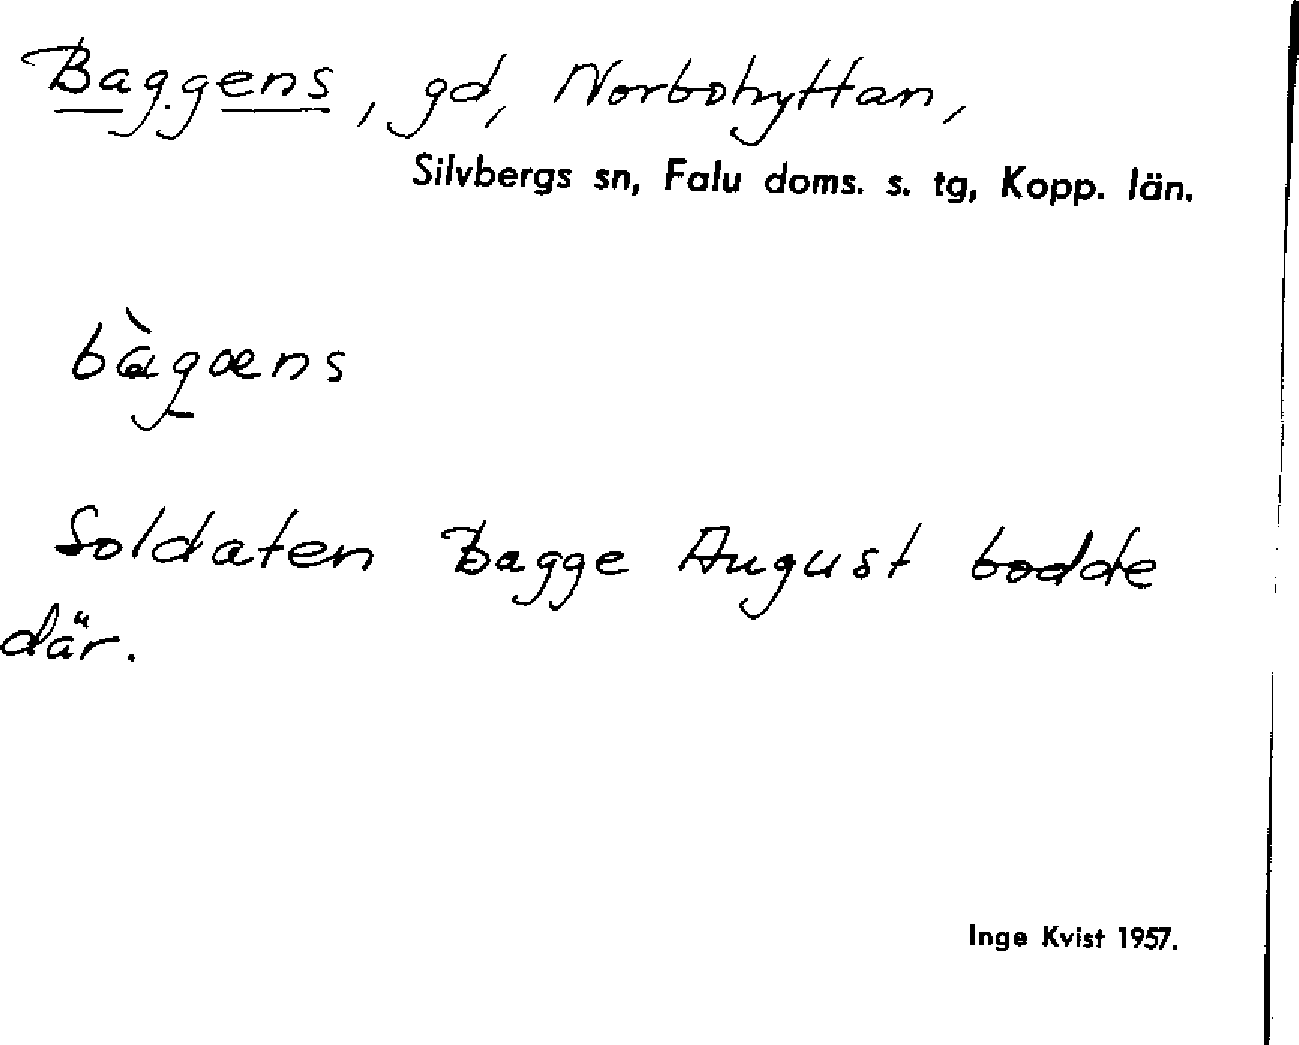 Baggens, gd, Norbohyttan,
Silvbergs sn, Falu doms. s. tg, Kopp. län.
bàgæns
Soldaten Bagge August bodde
där.
Inge Kvist 1957.